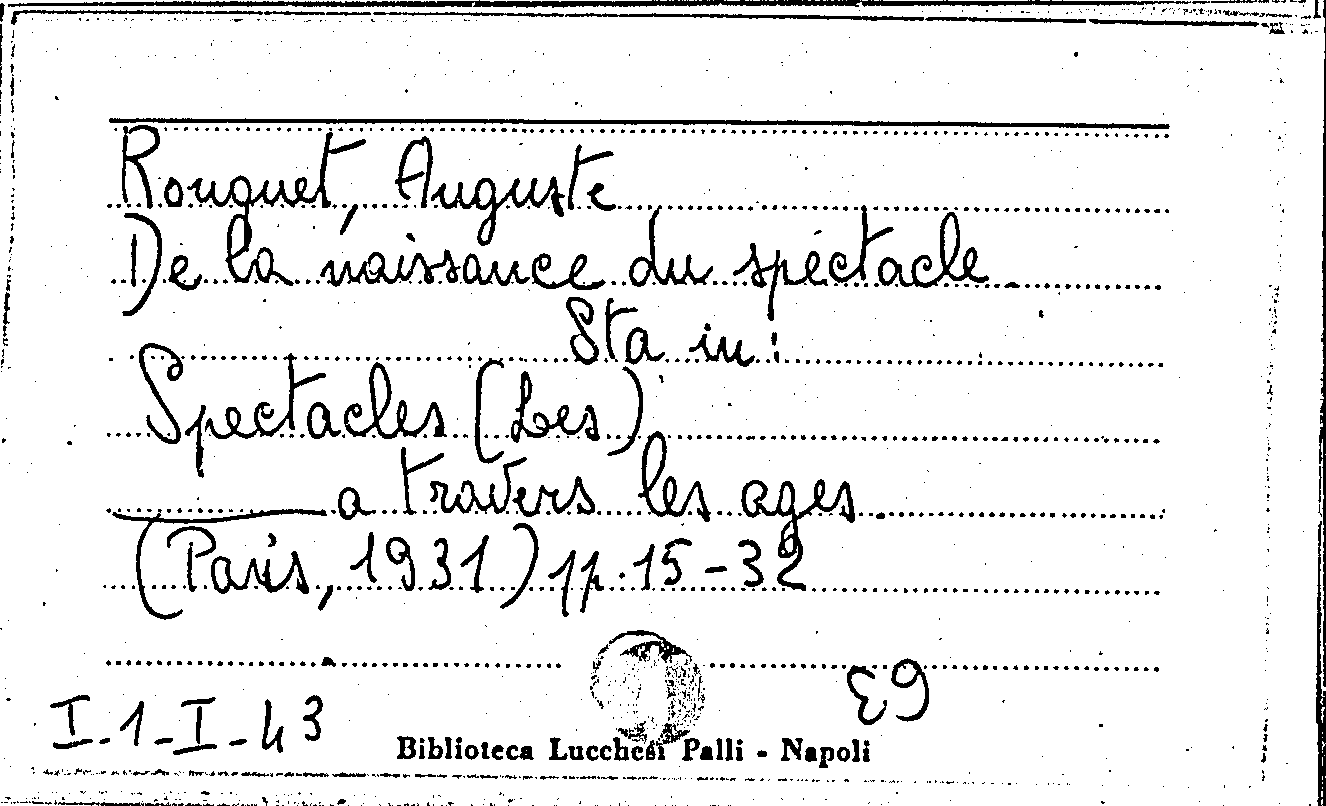 Rouquet, Auguste
De la naissance du spectacle.
Sta in:
Spectacles (Les)
a travers les ages.
(Paris, 1931) pp. 15-32
E9
I-1-I-43
Biblioteca Lucchesi Palli - Napoli